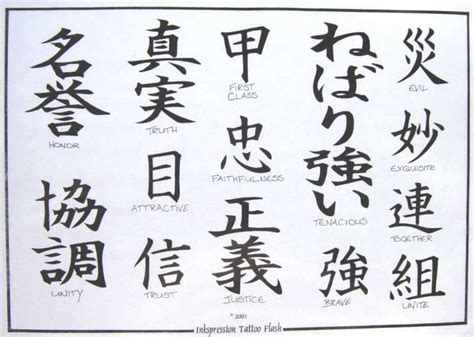 名誉
HONOR
協調
UNITY
真実
TRUTH
目
ATTRACTIVE
信
TRUST
甲
FIRST
CLASS
忠
FAITHFULNESS
正義
JUSTICE
ねばり強い
TENACIOUS
強
BRAVE
災
EVIL
妙
EXQUISITE
連
TOGETHER
組
UNITE
© 2001
Inkspression Tattoo Flash